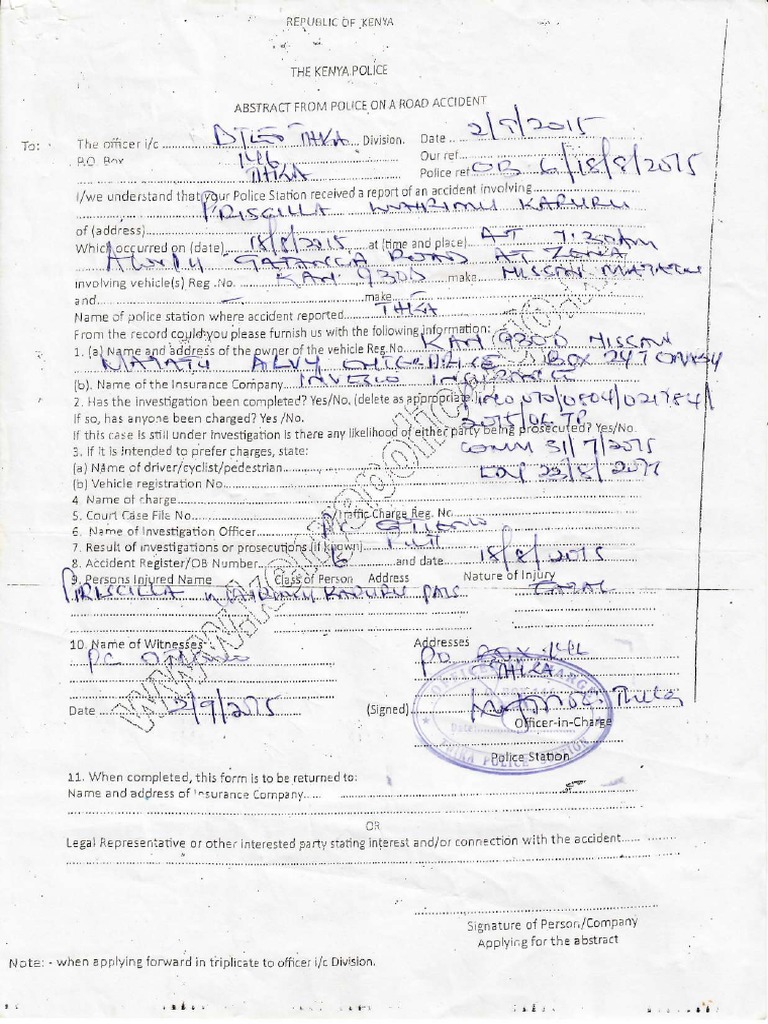 REPUBLIC OF KENYA
THE KENYA POLICE
ABSTRACT FROM POLICE ON A ROAD ACCIDENT
To: The officer i/c THIKA Division. Date 2/9/2015
P.O. Box 146 Our ref
THIKA Police ref OB 6/18/8/2015
I/we understand that your Police Station received a report of an accident involving
PRISCILLA WAIRIMU KARURU
of (address)
Which occurred on (date) 18/8/2015 at (time and place) AT 7:30AM
ALONG GATANGA ROAD AT
involving vehicle(s) Reg .No. KAN 930D make NISSAN MATATU
and - make
Name of police station where accident reported THIKA
From the record could you please furnish us with the following information:
1. (a) Name and address of the owner of the vehicle Reg.No. KAN 930D NISSAN
MATATU BOX 247
(b). Name of the Insurance Company
2. Has the investigation been completed? Yes/No. (delete as appropriate.)
If so, has anyone been charged? Yes /No.
If this case is still under investigation is there any likelihood of either party being prosecuted? Yes/No.
3. If it is intended to prefer charges, state: COMM 31/7/2015
(a) Name of driver/cyclist/pedestrian
(b) Vehicle registration No.
4 Name of charge
5. Court Case File No. Traffic Charge Reg. No
6. Name of Investigation Officer
7. Result of investigations or prosecutions (if known) PUI
8. Accident Register/OB Number 6 and date 18/8/2015
9. Persons Injured Name Class of Person Address Nature of Injury
PRISCILLA WAIRIMU KARURU PASS
10. Name of Witnesses Addresses
PC PO BOX 146
THIKA
Date 2/9/2015 (Signed)
Officer-in-Charge
THIKA POLICE STATION
Police Station
11. When completed, this form is to be returned to:
Name and address of Insurance Company
OR
Legal Representative or other interested party stating interest and/or connection with the accident
Signature of Person/Company
Applying for the abstract
Note: - when applying forward in triplicate to officer i/c Division.